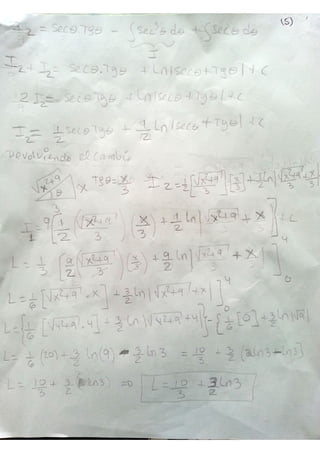 (5)
I₂ = secθ Tgθ - ∫sec³θ dθ + ∫secθ dθ
I
I₂ + I₂ = secθ.Tgθ + Ln|secθ+Tgθ| + c
2 I₂ = secθ Tgθ + Ln|secθ+Tgθ| + c
I₂ = 1/2 secθ Tgθ + 9/2 Ln|secθ+Tgθ| + c
Devolviendo el cambio
√x²+9 θ 3 x Tgθ = x/3 I₂ = 1/2 [√x²+9/3] [x/3] + 1/2 Ln|√x²+9/3 + x/3|
I₁ = 9 [1/2 (√x²+9/3) (x/3) + 1/2 Ln|√x²+9/3 + x/3|] + c
L = 1/3 (9/2 (√x²+9/3) (x/3) + 9/2 Ln|√x²+9/3 + x/3|]⁴₀
L = 1/6 [√x²+9 · x] + 3/2 Ln|√x²+9 + x|]⁴₀
L = {1/6 [√4²+9 · 4] + 3/2 Ln|√4²+9 + 4|} - {1/6 [0] + 3/2 Ln|√9|
L = 1/6 (20) + 3/2 Ln(9) - 3/2 Ln3 = 10/3 + 3/2 (2Ln3 - Ln3)
L = 10/3 + 3/2 (Ln3) ⇒ L = 10/3 + 3/2 Ln3